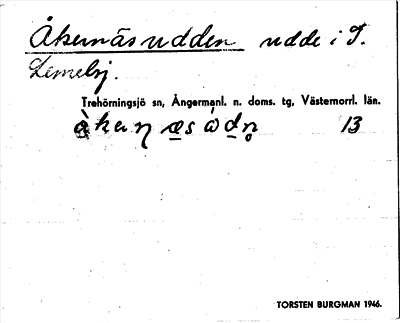 Åkernäsudden udde i S.
Lemelsj.
Trehörningsjö sn, Ångermanl. n. doms. tg, Västernorrl. län.
13
TORSTEN BURGMAN 1946.